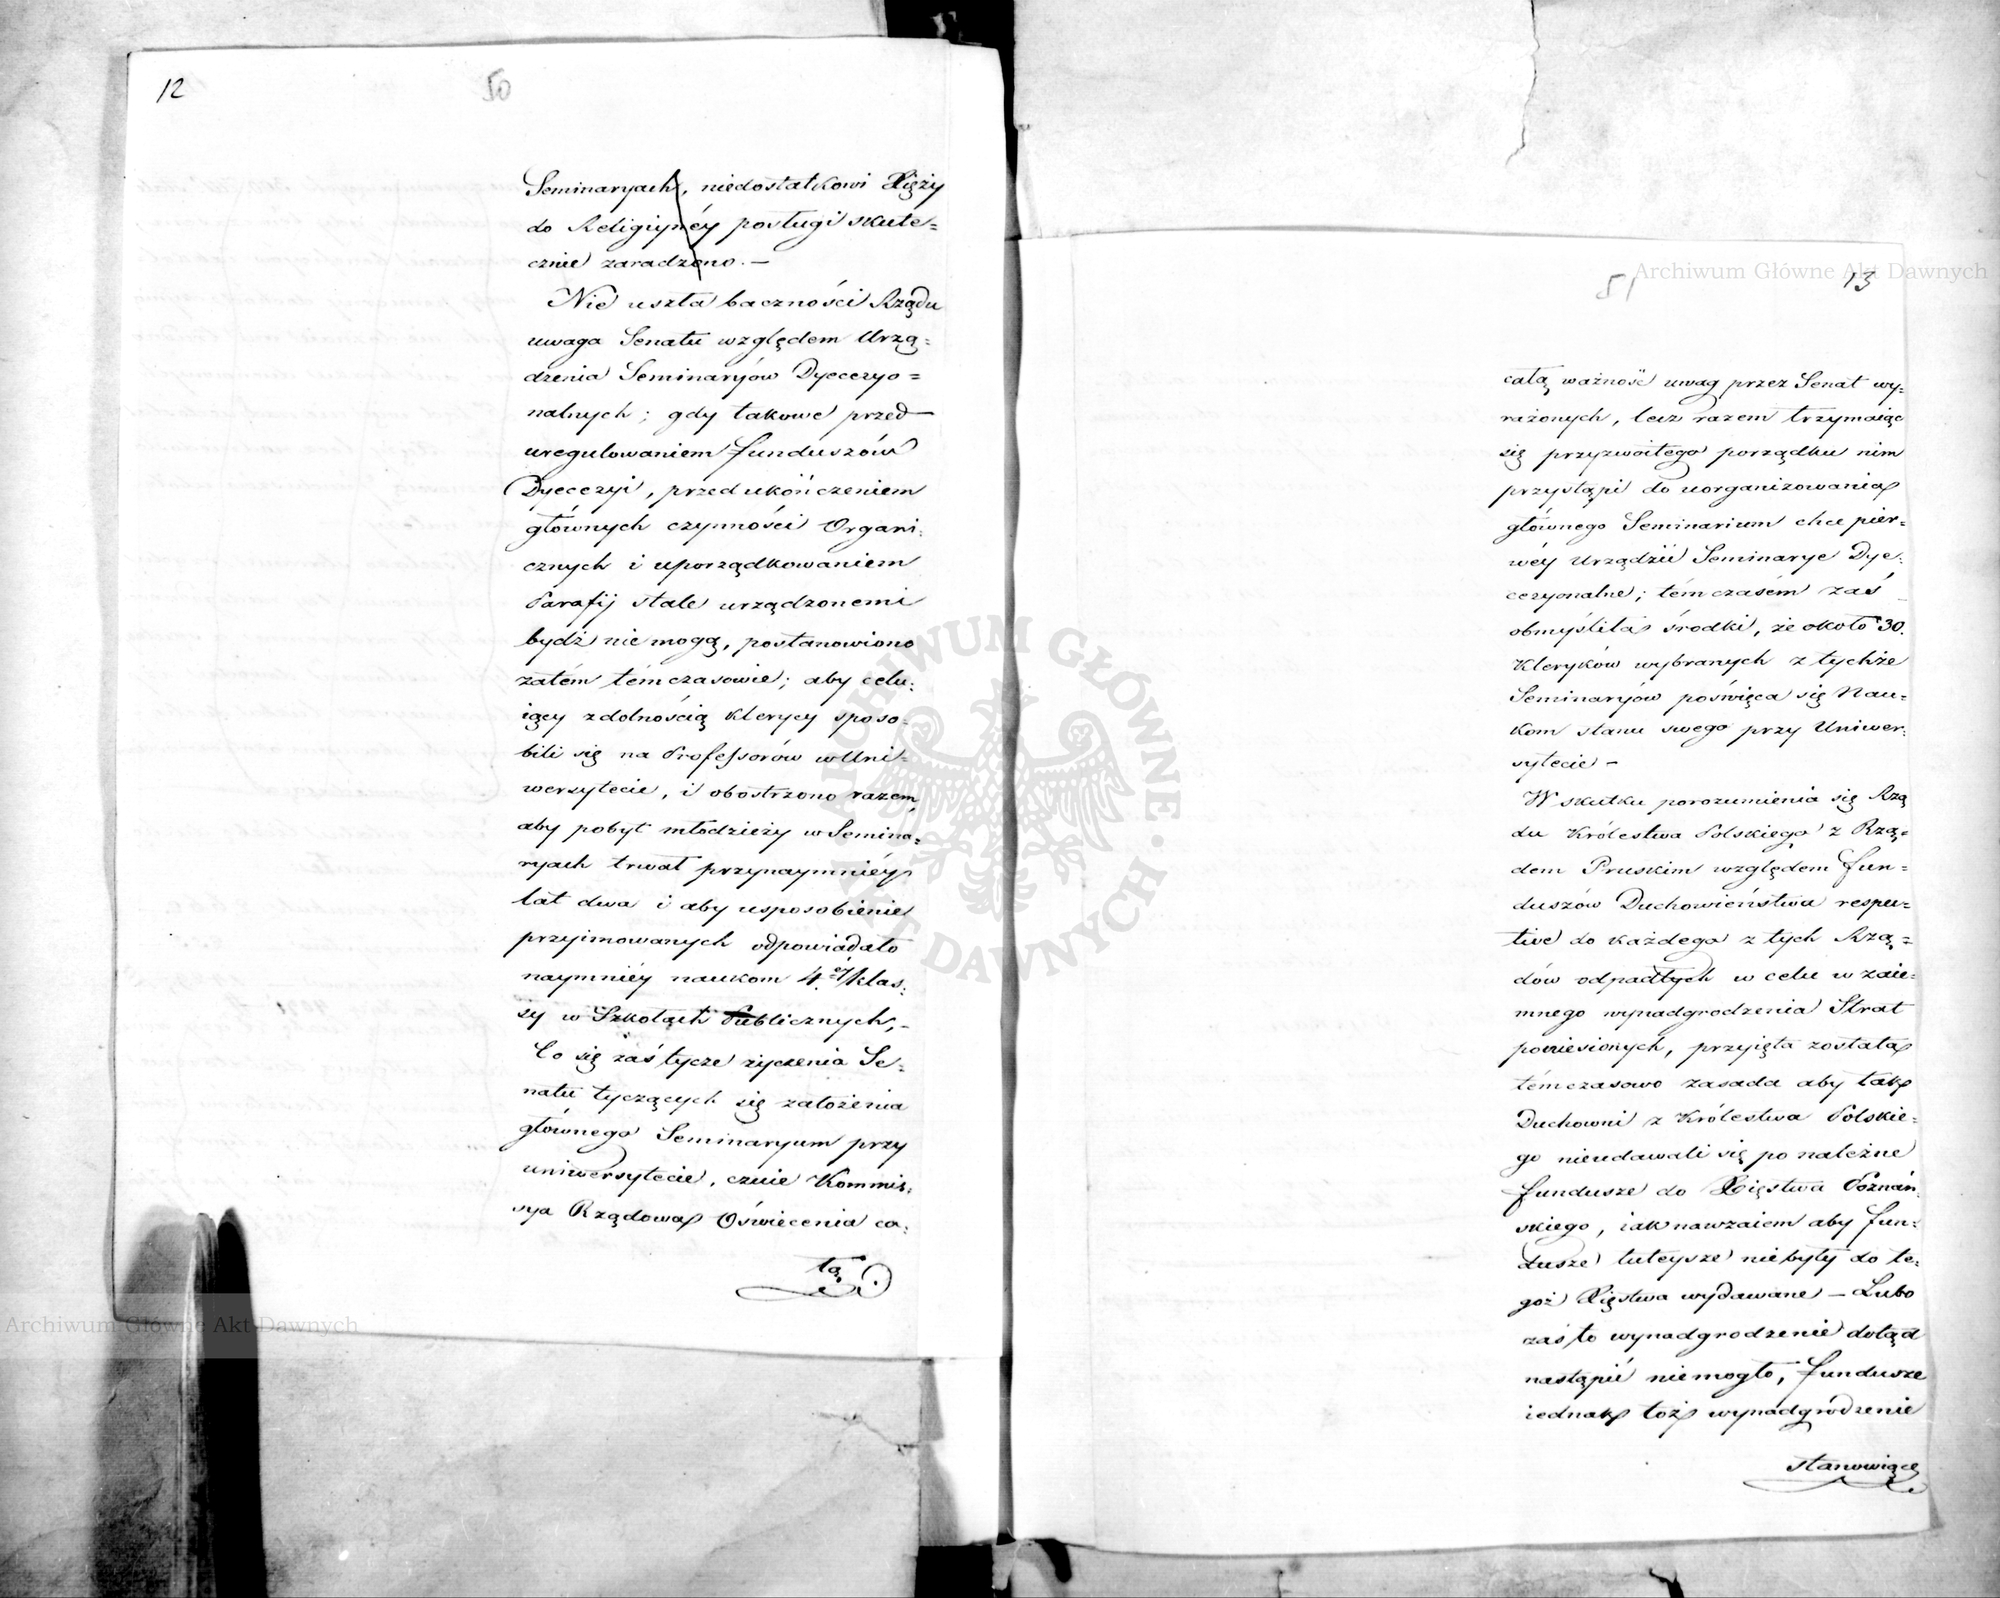 12
50
Seminaryach, niedostatkowi Xięży
do Religiynéy posługi skute=
cznie zaradzono. —
Nie uszła baczności Rządu
uwaga Senatu względem Urzą=
dzenia Seminaryów Dyecezyo=
nalnych; gdy takowe przed
uregulowaniem funduszów
Dyecezyi, przed ukończeniem
głównych czynności Organi=
cznych i uporządkowaniem
Parafij stale urządzonemi
bydź nie mogą, postanowiono
zatém témczasowie; aby celu=
iący zdolnością klerycy sposo=
bili się na Professorów w Uni=
wersytecie, i obostrzono razem,
aby pobyt młodzieży w Semina=
ryach trwał przynaymniéy
lat dwa i aby usposobienie
przyimowanych odpowiadało
naymniéy naukom 4.éy klas=
sy w Szkołach Publicznych, –
Co się zaś tycze życzenia Se=
natu tyczących się założenia
głównego Seminaryum przy
uniwersytecie, czuie Kommis=
sya Rządowa Oświecenia ca=
łą
51
13
całą ważność uwag przez Senat wy=
rażonych, lecz razem trzymaiąc
się przyzwoitego porządku nim
przystąpi do uorganizowania
głównego Seminarium chce pier=
wéy Urządzić Seminarye Dye=
cezyonalne; témczasém zaś
obmyśliła środki, że około 30.
Kleryków wybranych z tychże
Seminaryów poświęca się Nau=
kom stanu swego przy Uniwer=
sytecie –
W skutku porozumienia się Rzą
du Królestwa Polskiego z Rzą=
dem Pruskim względem fun=
duszów Duchowieństwa respec=
tive do każdego z tych Rzą=
dów odpadłych w celu wzaie=
mnego wynadgrodzenia Strat
poniesionych, przyięta została
témczasowo zasada aby tak
Duchowni z Królestwa Polskie=
go nieudawali się po należne
fundusze do Xięstwa Poznań=
skiego, iak nawzaiem aby fun=
dusze tuteysze niebyły do te=
goż Xięstwa wydawane — Lubo
zaś to wynadgrodzenie dotąd
nastąpić niemogło, fundusze
iednak toż wynadgrodzenie
stanowiące
Archiwum Główne Akt Dawnych
Archiwum Główne Akt Dawnych
ARCHIWUM GŁÓWNE AKT DAWNYCH